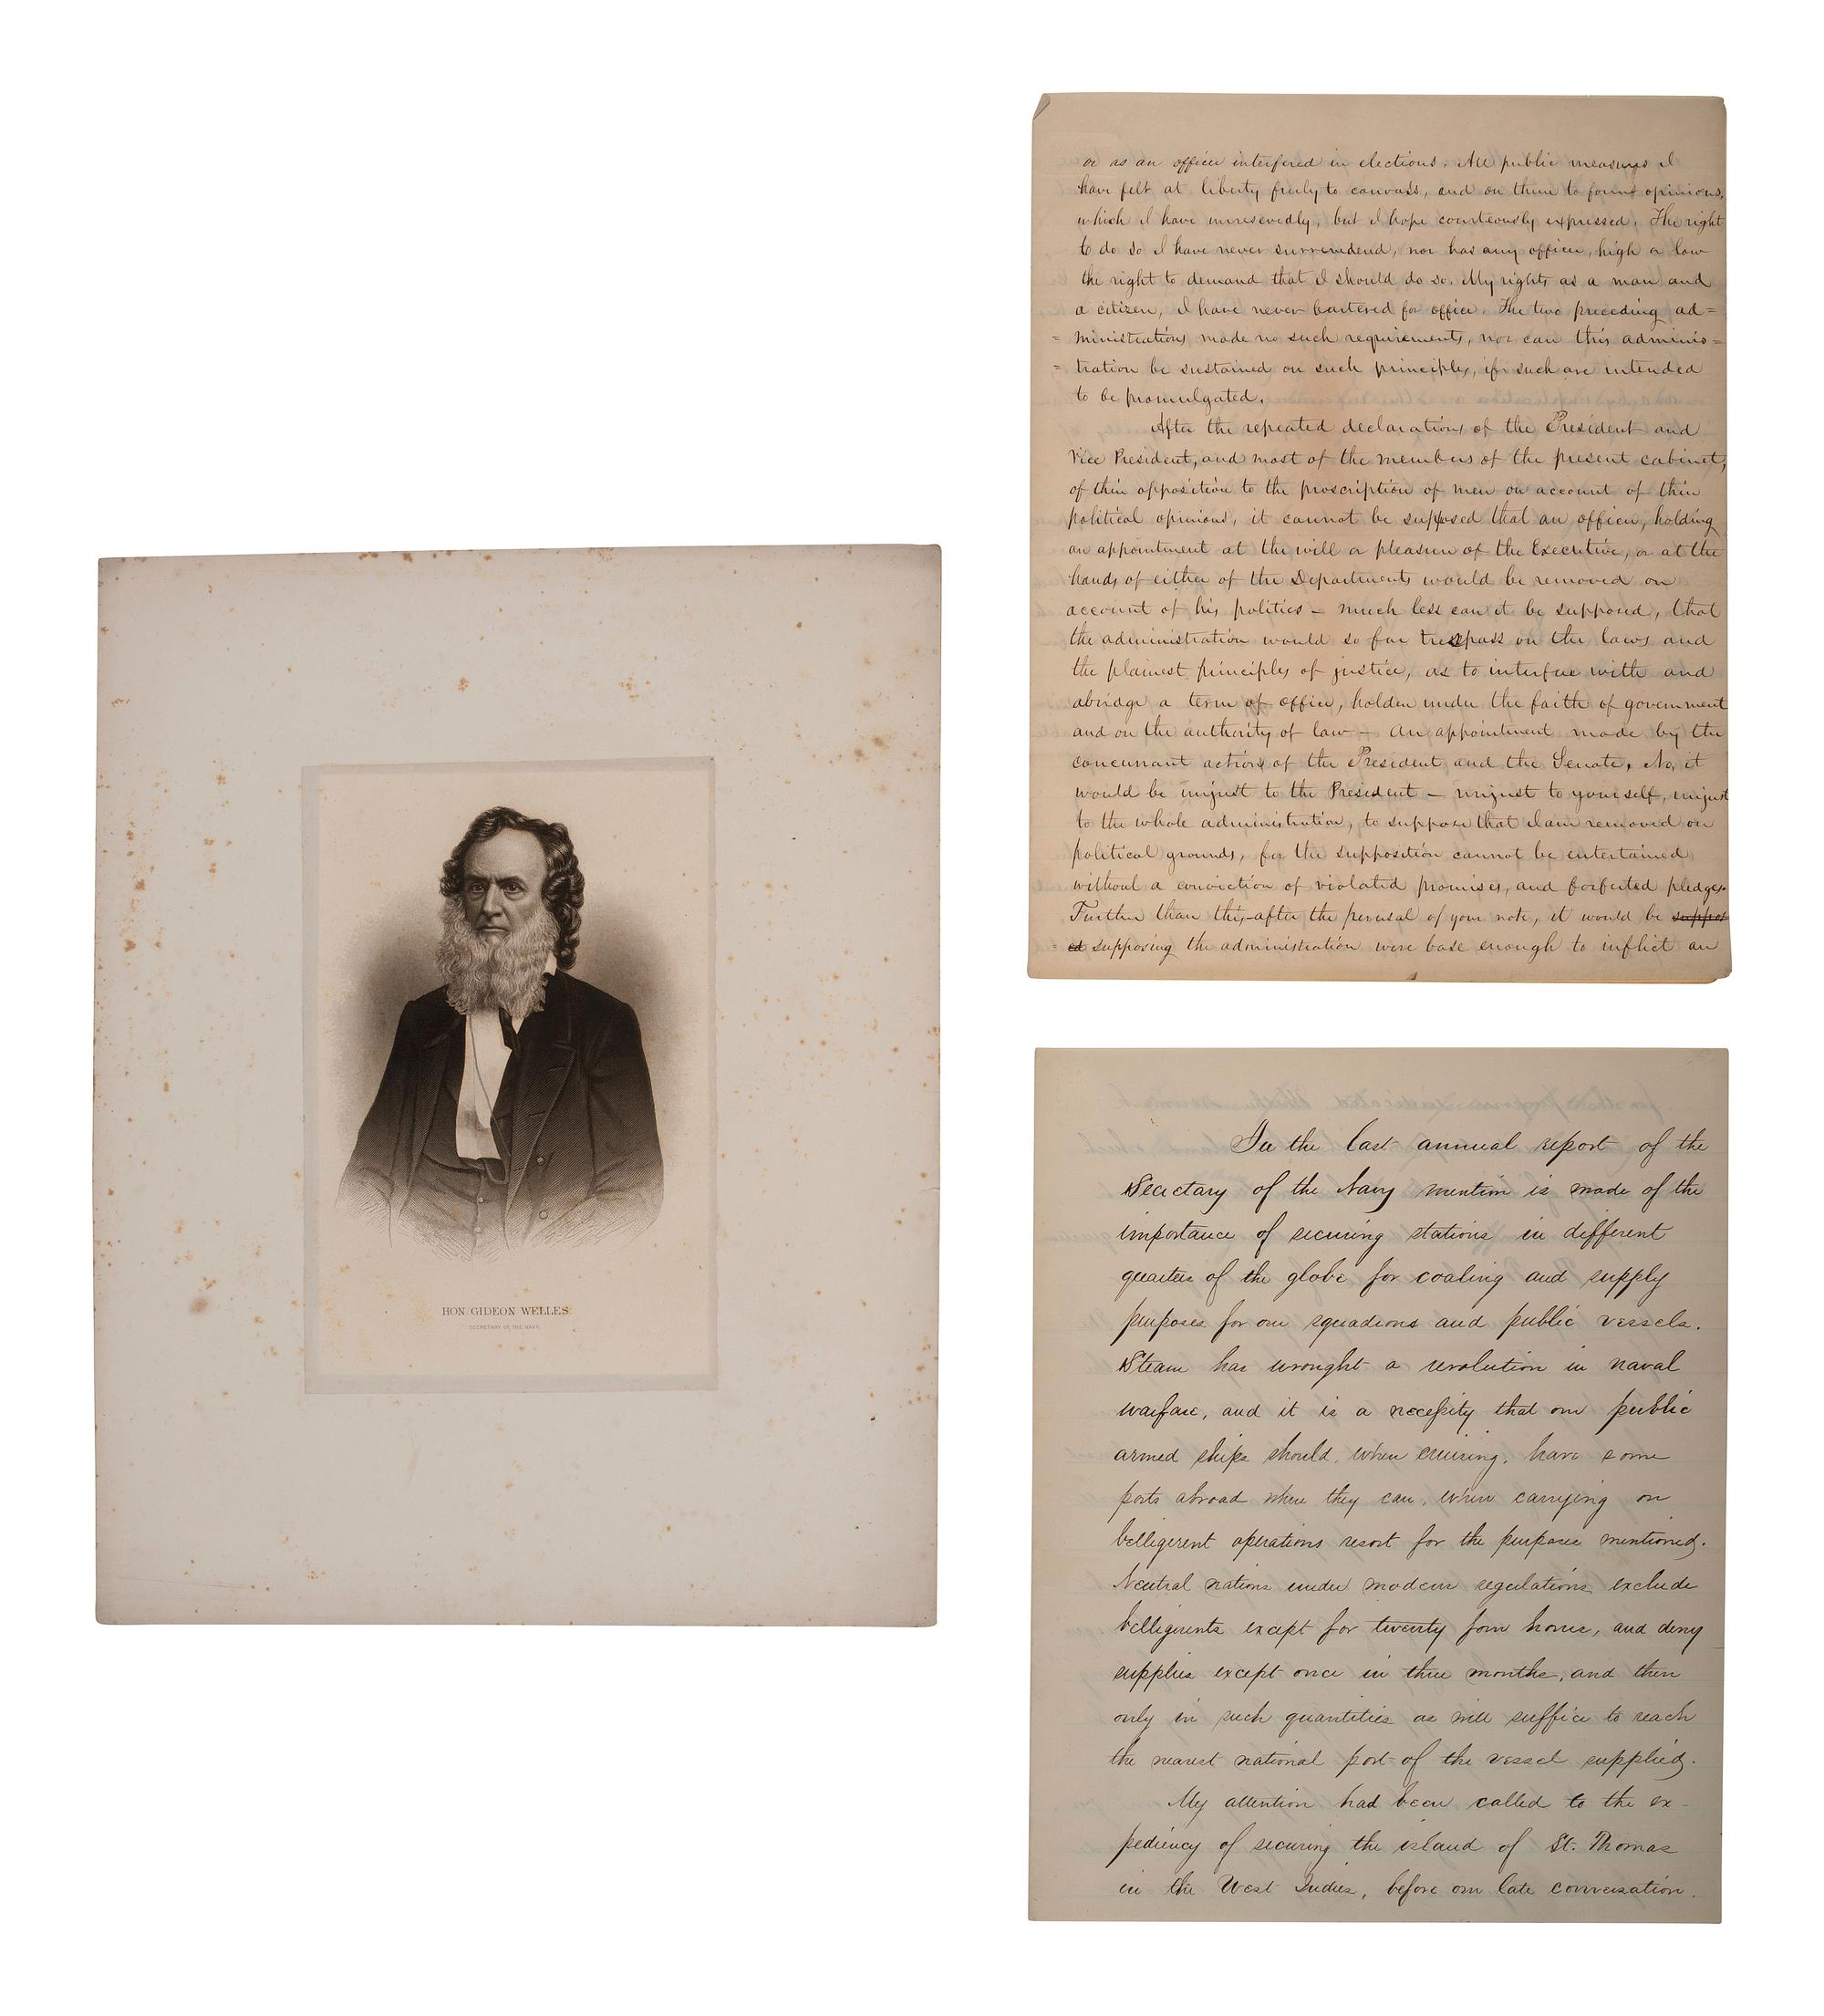 HON. GIDEON WELLES.
SECRETARY OF THE NAVY.
or as an officer interfered in elections. All public measures I
have felt at liberty freely to canvass, and on them to form opinions,
which I have unreservedly, but I hope courteously expressed. The right
to do so I have never surrendered, nor has any officer, high or low
the right to demand that I should do so. My rights as a man and
a citizen, I have never bartered for office. The two preceding ad=
= ministrations made no such requirements, nor can this adminis=
= tration be sustained on such principles, if such are intended
to be promulgated.
After the repeated declarations of the President and
Vice President, and most of the members of the present cabinet,
of their opposition to the proscription of men on account of their
political opinions, it cannot be supposed that an officer, holding
an appointment at the will or pleasure of the Executive, or at the
hands of either of the Departments would be removed on
account of his politics – much less can it be supposed, that
the administration would so far trespass on the laws and
the plainest principles of justice, as to interfere with and
abridge a term of office, holden under the faith of government
and on the authority of law – an appointment made by the
concurrant actions of the President and the Senate. No, it
would be unjust to the President – unjust to yourself, unjust
to the whole administration, to suppose that I am removed on
political grounds, for the supposition cannot be entertained
without a conviction of violated promises, and forfeited pledges.
Further than this, after the perusal of your note, it would be suppos
= ed supposing the administration were base enough to inflict an
In the last annual report of the
Secretary of the Navy mention is made of the
importance of securing stations in different
quarters of the globe for coaling and supply
purposes for our squadrons and public vessels.
Steam has wrought a revolution in naval
warfare, and it is a necessity that our public
armed ships should, when cruising, have some
ports abroad where they can, when carrying on
belligerent operations resort for the purposes mentioned.
Neutral nations under modern regulations exclude
belligerents except for twenty four hours, and deny
supplies except once in three months, and then
only in such quantities as will suffice to reach
the nearest national port of the vessel supplied.
My attention had been called to the ex-
pediency of securing the island of St. Thomas
in the West Indies, before our late conversation.